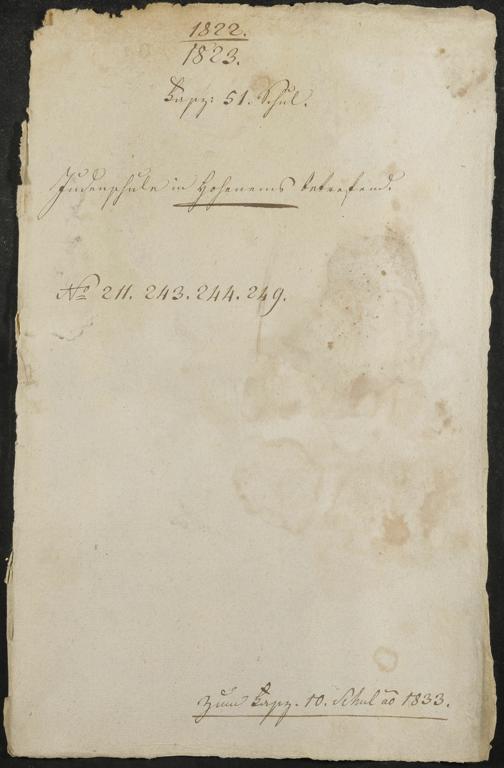 1822.
1823.
Fasz: 51. Schul.
Judenschule in Hohenems betrefend.
No 211. 243. 244. 249.
zum Fasz. 10. Schul ao 1833.